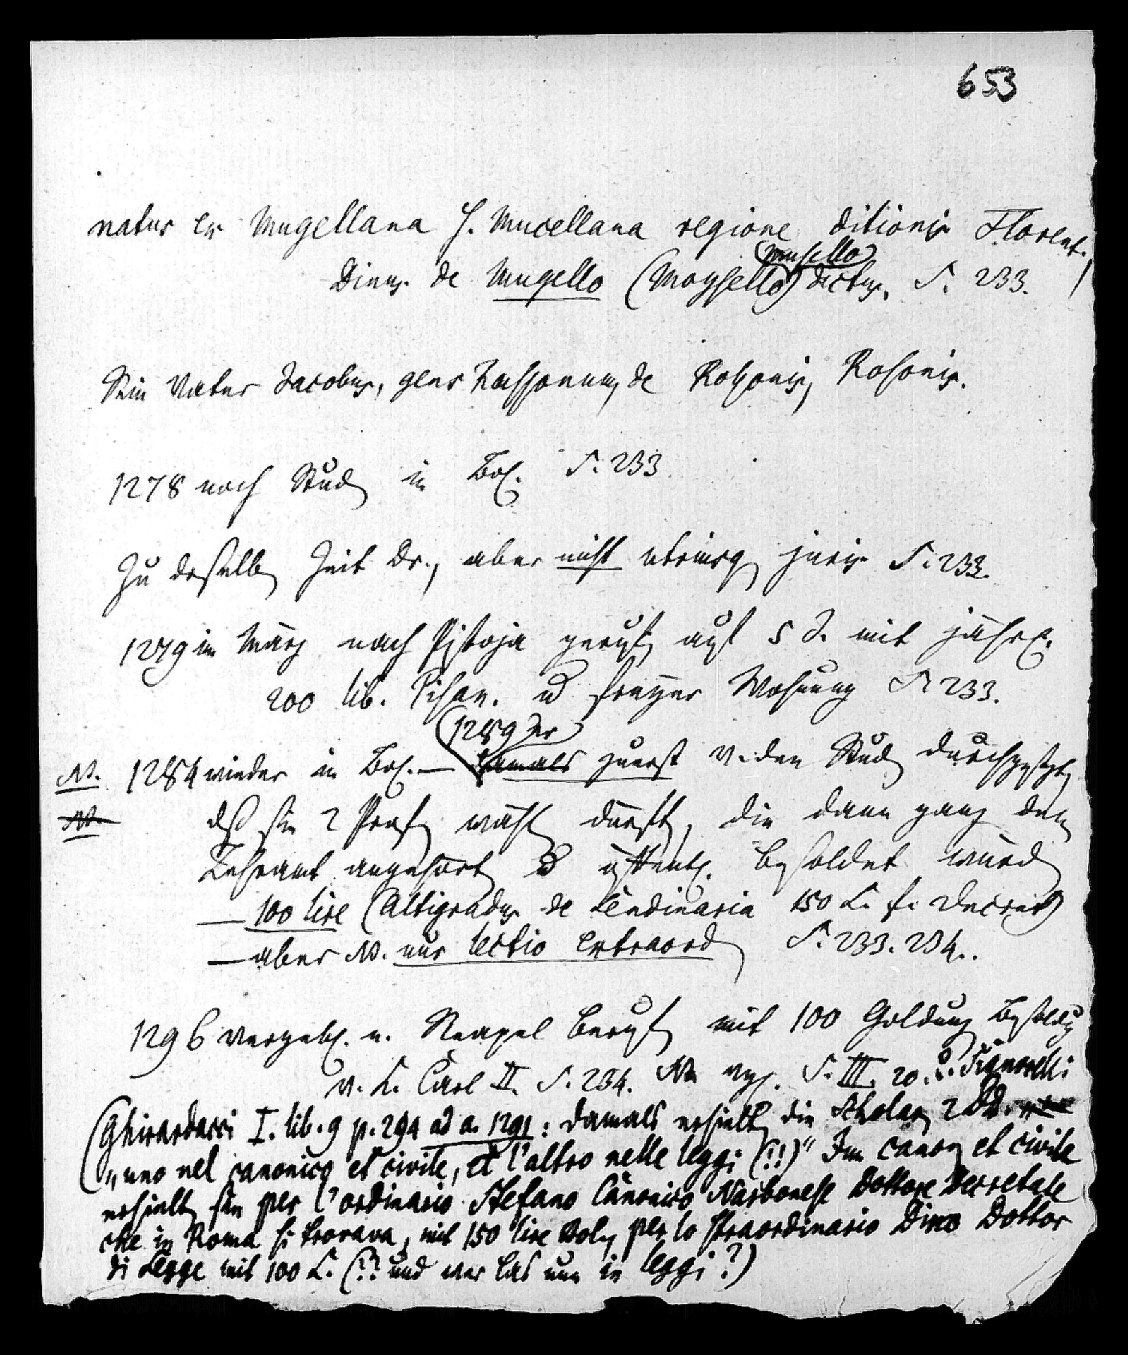 653
natus ex Mugellana s. Mucellana regione ditionis Florent.,
Dinus de Mugello (Moysello) (Musello) dictus. S. 233.
Sein Vater Jacobus, gens de Rossonis, Rosonis.
1278 noch Stud in Bol. S. 233
Zu derselben Zeit Dr., aber nicht utriusq juris S. 233.
1279 im März nach Pistoja gerufen auf 5 J. mit jährl.
200 lib. Pisan. u freyer Wohnung S 233.
NB. 1284 wieder in Bol. — (1289 er damals zuerst v. den Stud durchgesetzt
NB. daß sie 2 Prof wählen durften, die dann ganz dem
Lehramt angehört u öffentl. besoldet wurden
— 100 lire (Altigradus de Lendinaria 150 L. f. Decret)
— aber NB. nur lectio extraord S. 233. 234.
1296 vergebl. n. Neapel berufen mit 100 Goldunz Besoldg
v. K. Carl II. S. 234. NB vgl. S. III. 20. Signorelli
(Ghirardacci I. lib. 9 p. 294 ad a. 1291: damals erhielten die Scholaren 2
„uno nel canonico et civile, et l'altro nelle leggi (!!)" Im canon et civile
erhielten sie per l'ordinario Stefano Canonico Narbonese Dottore Decretale
che in Roma si trovava, mit 150 lire Bolog, per lo straordinario Dino Dottor
di Legge mit 100 L. (?? und wer las nun in leggi?)